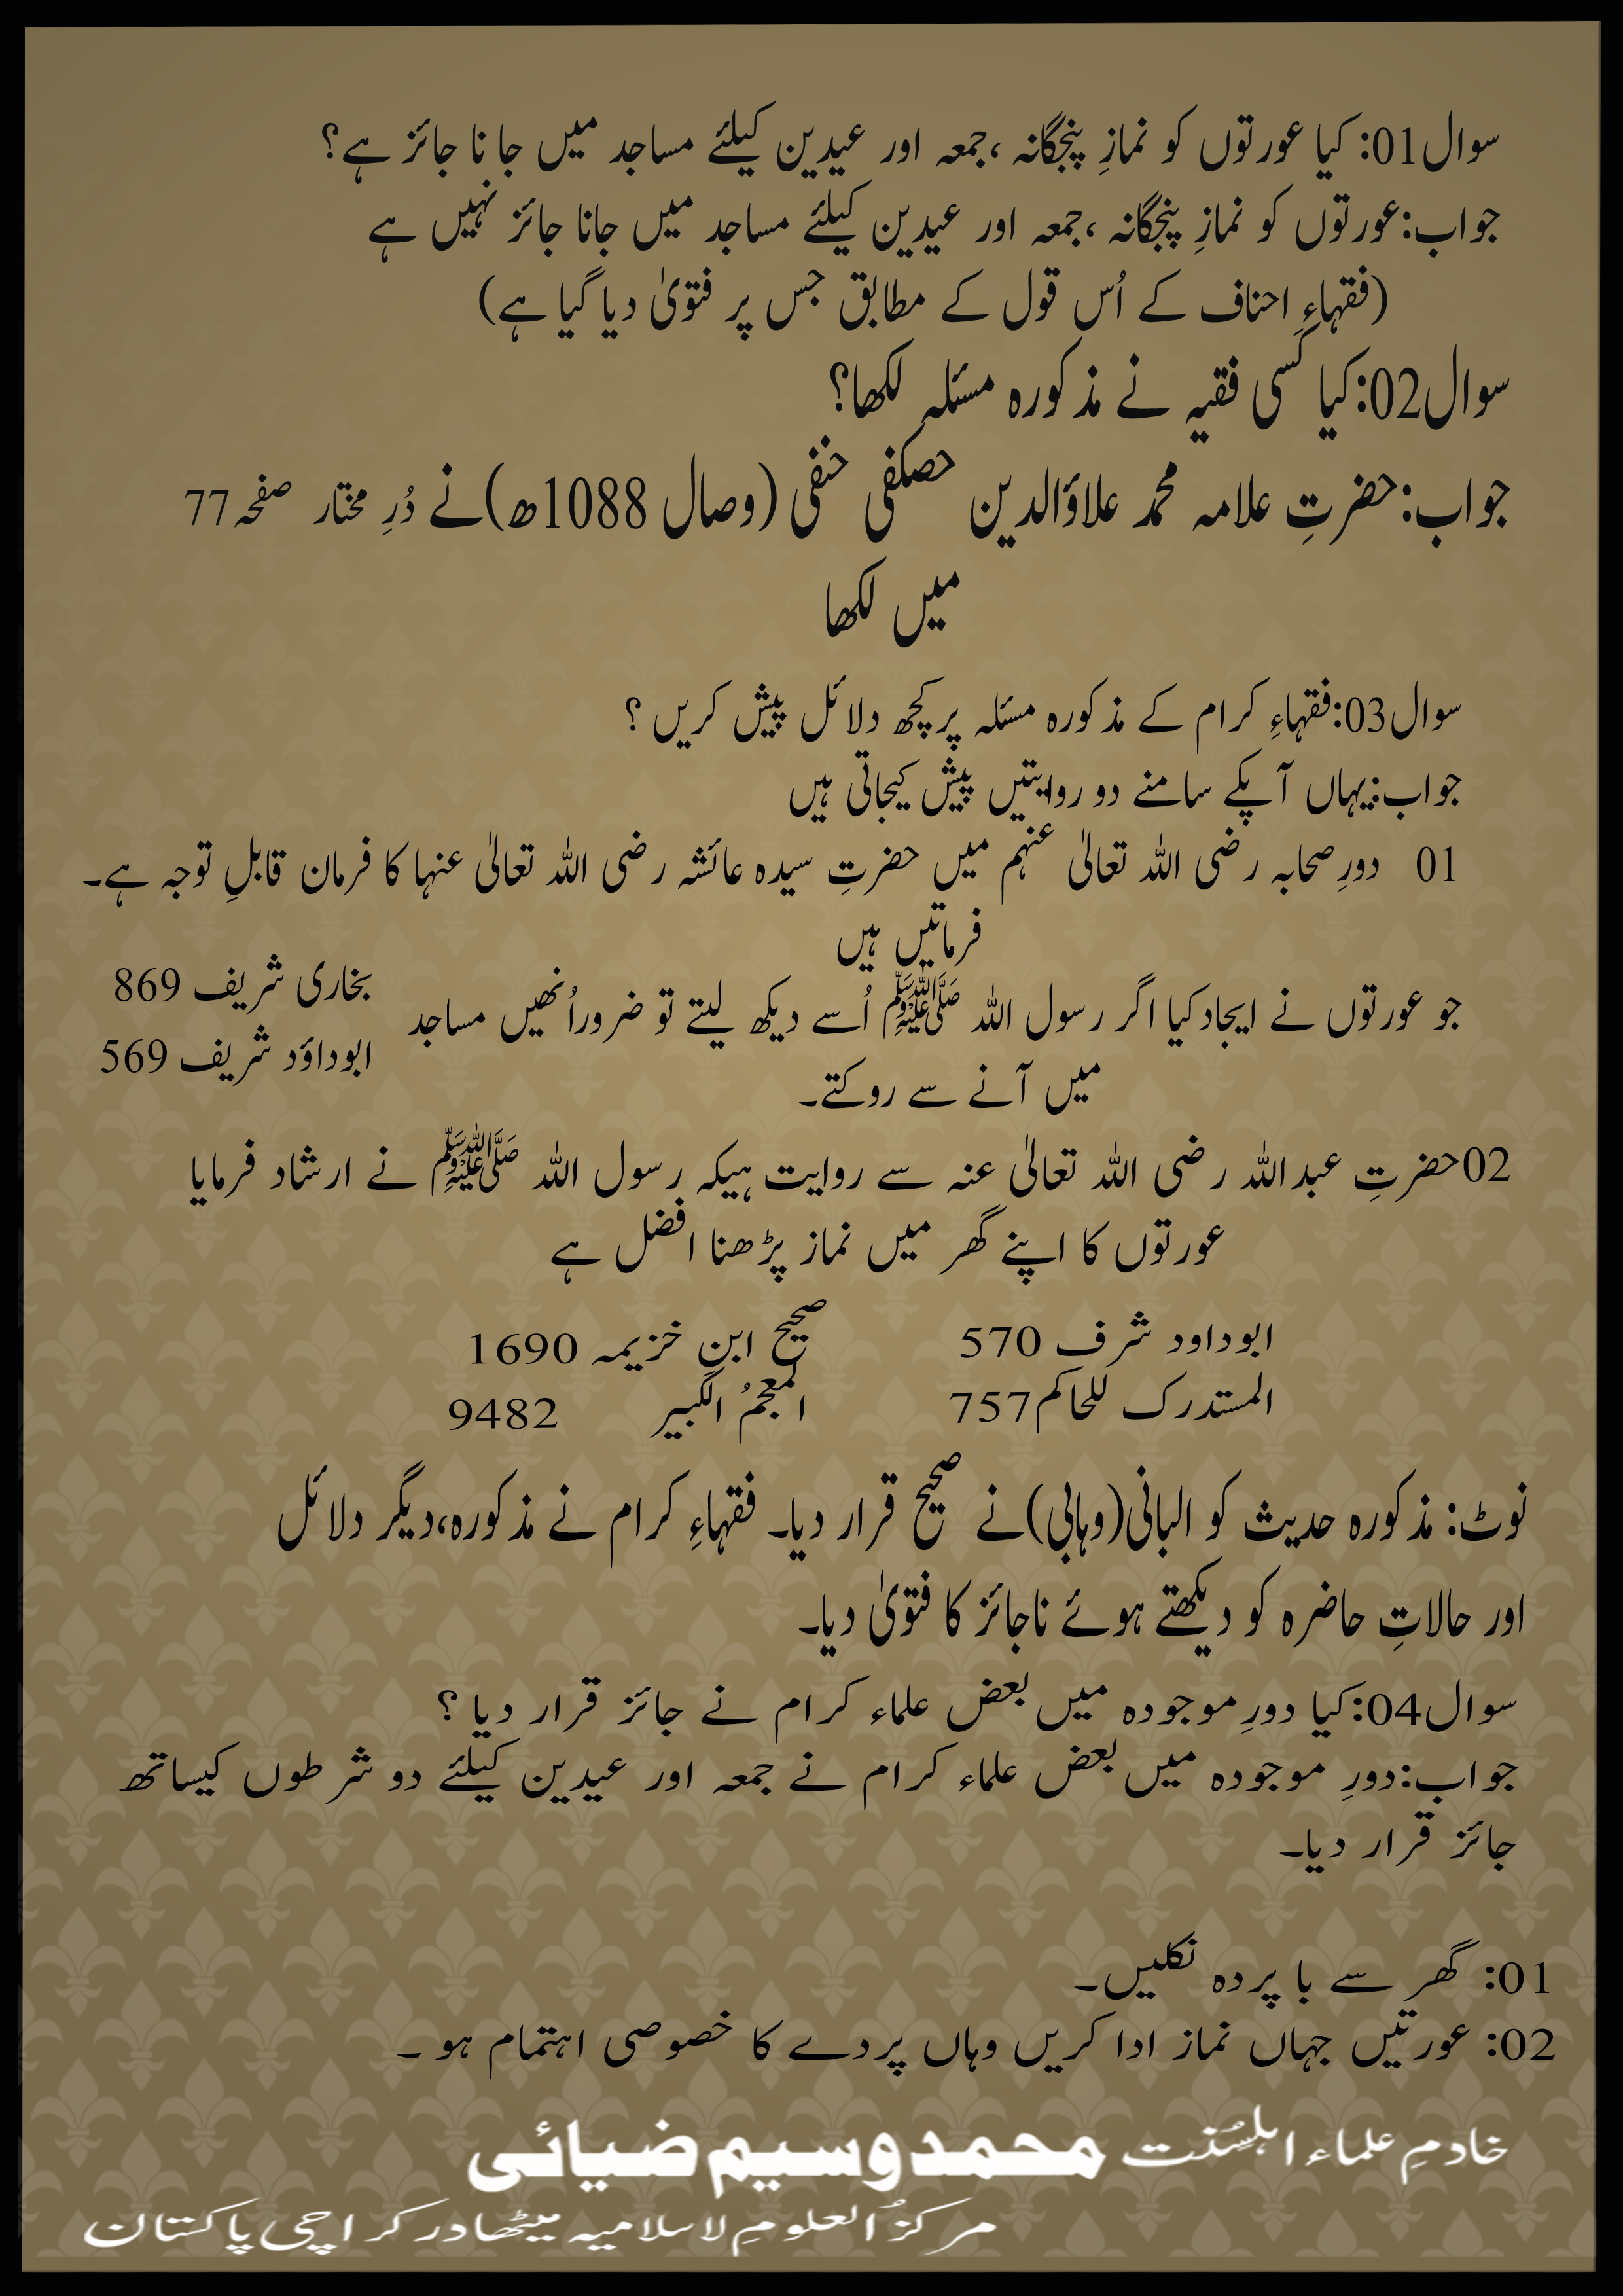 سوال01: کیا عورتوں کو نمازِ پنجگانہ ،جمعہ اور عیدین کیلئے مساجد میں جانا جائز ہے؟
جواب:عورتوں کو نمازِ پنجگانہ ،جمعہ اور عیدین کیلئے مساجد میں جانا جائز نہیں ہے
(فقہاءِ احناف کے اُس قول کے مطابق جس پر فتویٰ دیا گیا ہے)
سوال02:کیا کسی فقیہ نے مذکورہ مسئلہ لکھا؟
جواب:حضرتِ علامہ محمد علاؤالدین حصکفی حنفی (وصال 1088ھ)نے دُرِ مختار صفحہ77
میں لکھا
سوال03:فقہاءِ کرام کے مذکورہ مسئلہ پرکچھ دلائل پیش کریں ؟
جواب:یہاں آپکے سامنے دو روایتیں پیش کیجاتی ہیں
01 دورِصحابہ رضی اللہ تعالیٰ عنہم میں حضرتِ سیدہ عائشہ رضی اللہ تعالیٰ عنہا کا فرمان قابلِ توجہ ہے۔
فرماتیں ہیں
جو عورتوں نے ایجادکیا اگر رسول اللہ ﷺ اُسے دیکھ لیتے تو ضروراُنھیں مساجد
میں آنے سے روکتے۔
بخاری شریف 869
ابوداؤد شریف 569
02حضرتِ عبداللہ رضی اللہ تعالیٰ عنہ سے روایت ہیکہ رسول اللہ ﷺ نے ارشاد فرمایا
عورتوں کا اپنے گھر میں نماز پڑھنا افضل ہے
ابوداود شرف 570 صحیح ابنِ خزیمہ 1690
المستدرک للحاکم757 المعجمُ الکبیر 9482
نوٹ: مذکورہ حدیث کو البانی(وہابی)نے صحیح قرار دیا۔ فقہاءِ کرام نے مذکورہ،دیگر دلائل
اور حالاتِ حاضرہ کو دیکھتے ہوئے ناجائز کا فتویٰ دیا۔
سوال04:کیا دورِموجودہ میں بعض علماء کرام نے جائز قرار دیا ؟
جواب:دورِ موجودہ میں بعض علماء کرام نے جمعہ اور عیدین کیلئے دو شرطوں کیساتھ
جائز قرار دیا۔
01: گھر سے با پردہ نکلیں۔
02: عورتیں جہاں نماز ادا کریں وہاں پردے کا خصوصی اہتمام ہو ۔
خادمِ علماء اہلسُنّت محمد وسیم ضیائی
مرکزُ العلومِ لاسلامیہ میٹھادر کراچی پاکستان